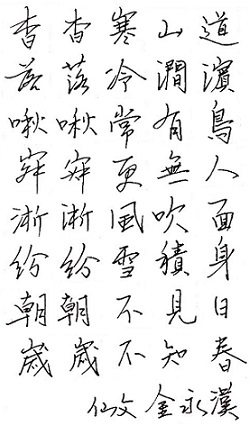 杳杳寒山道
落落冷澗濱
啾啾常有鳥
寂寂更無人
淅淅風吹面
紛紛雪積身
朝朝不見日
歲歲不知春
仙文 金永漢